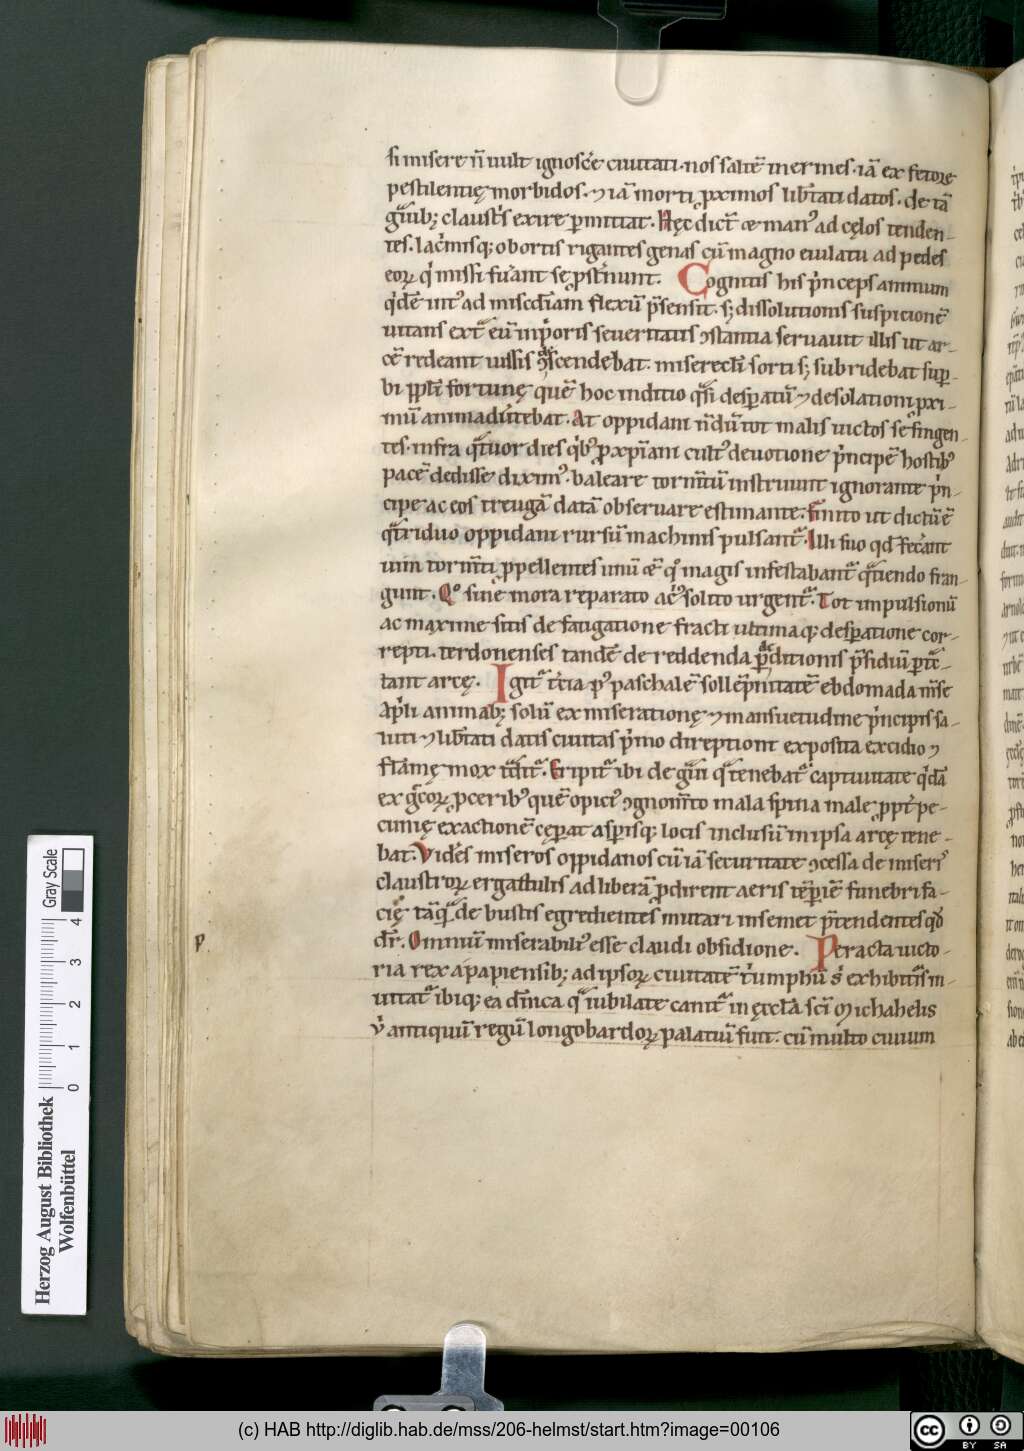 si misere n̄ uult ignosc̄e ciuitati. nos saltē inermes. iā ex fetore
pestilentię morbidos. ⁊ iā morti ꝓximos lib̄tati datos. de tā
g̃uib; claust̄s exire ꝑmittat. Hęc dict̄ & man᷒ ad cęlos tenden-
tes. lac̓misq; obortis rigantes genas cū magno eiulatu ad pedes
eoꝝ q̓ missi fuānt se ꝓst̓nunt. Cognitis his p̓nceps animum
q̓dē int᷒ ad misc̄diam flexū p̄sensit. s; dissolutionis suspicionē
uitans ext̃ eū inp̓oris seueritatis ꝯstantia seruauit illis ut ar-
cē redeant iussis ꝯscendebat. miserecl̄i sorti s; subridebat suꝑ-
bi ppl̄i fortunę quē hoc inditio q̃si desꝑatū ⁊ desolationi ꝓxi-
mū animadūtebat. At oppidani n̄dū tot malis uictos se fingen-
tes. infra q̃tuor dies q̓b᷒ ꝓ xp̄iani cult᷒ deuotione p̓ncipē hostib᷒
pacē dedisse dixim᷒. baleare torm̄tū instruunt ignorante p̓n-
cipe ac eos treugā datā obseruare estimante. Finito ut dictū ē
q̃triduo oppidani rursū machinis pulsant᷑. Illi suo qd̄ fec̓ant
uim torm̄ti ꝓpellentes unū & qͦ magis infestabant᷑ q̃tiendo fran-
gunt. Qͦ sine mora reparato ac̓ solito urgent᷑. Tot impulsionū
ac maxime sitis de fatigatione fracti ultimaq; desꝑatione cor-
repti. terdonenses tandē de reddenda ꝑditionis p̄sidiū ꝑtc̄-
tant arcę. Igit᷑ t̓cia p᷒ paschalē sollēpnitatē ebdomada m̄se
ap̓li animab; solū ex miseratione ⁊ mansuetudine p̓ncipis sa-
luti ⁊ lib̄tati datis ciuitas p̓mo direptioni exposita excidio ⁊
flāmę mox t̓dit᷑. Eripit᷑ ibi de g̃ui q̃ tenebat᷑ captiuitate q̓dā
ex g̃coꝝ ꝓcerib᷒ quē opic᷒ ꝯgnom̄to mala spina male ꝓpt̄ pe-
cunię exactionē cęꝑat aspisq; locis inclusū in ipsa arcę tene-
bat. Videꝰ miseros oppidanos cū iā securitate ꝯcessa de miseri᷒
claustroꝝ ergastulis ad liberā ꝓdirent aeris tēpiē funebri fa-
cię tāq̃ de bustis egredientes mutari in semet p̄tendentes qd̄
dr̄. Omniū miserabili᷒ esse claudi obsidione. Peracta uicto-
ria rex a papiensib; ad ipsoꝝ ciuitatē t̓umphū s̓ exhibit᷑is in-
uitat᷑ ibiq; ea dn̄ica q̃ iubilate canit᷑ in ęccl̄a sc̄i Michahelis
v̓ antiquū regū longobardoꝝ palatiū fuit. cū multo ciuium
p.
Herzog August Bibliothek
Wolfenbüttel
Gray Scale
0 1 2 3 4
(c) HAB http://diglib.hab.de/mss/206-helmst/start.htm?image=00106
cc BY SA